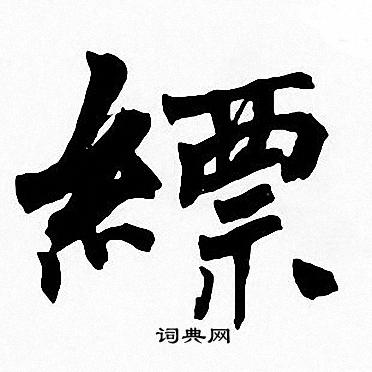 縹
词典网